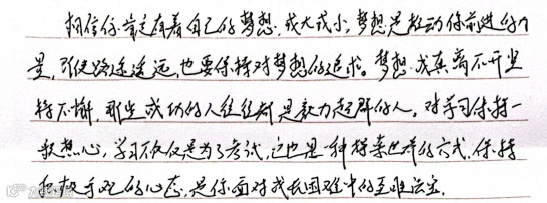 相信你肯定有着自己的梦想,或大或小,梦想是推动你前进的力
量,引使路途遥远,也要保持对梦想的追求。梦想成真离不开坚
持不懈,那些成功的人往往都是毅力超群的人。对学习保持一
热心,学习不仅仅是为了考试,这也是一种探索世界的方式,保持
积极乐观的心态,是你面对我长困难中的至胜法宝.